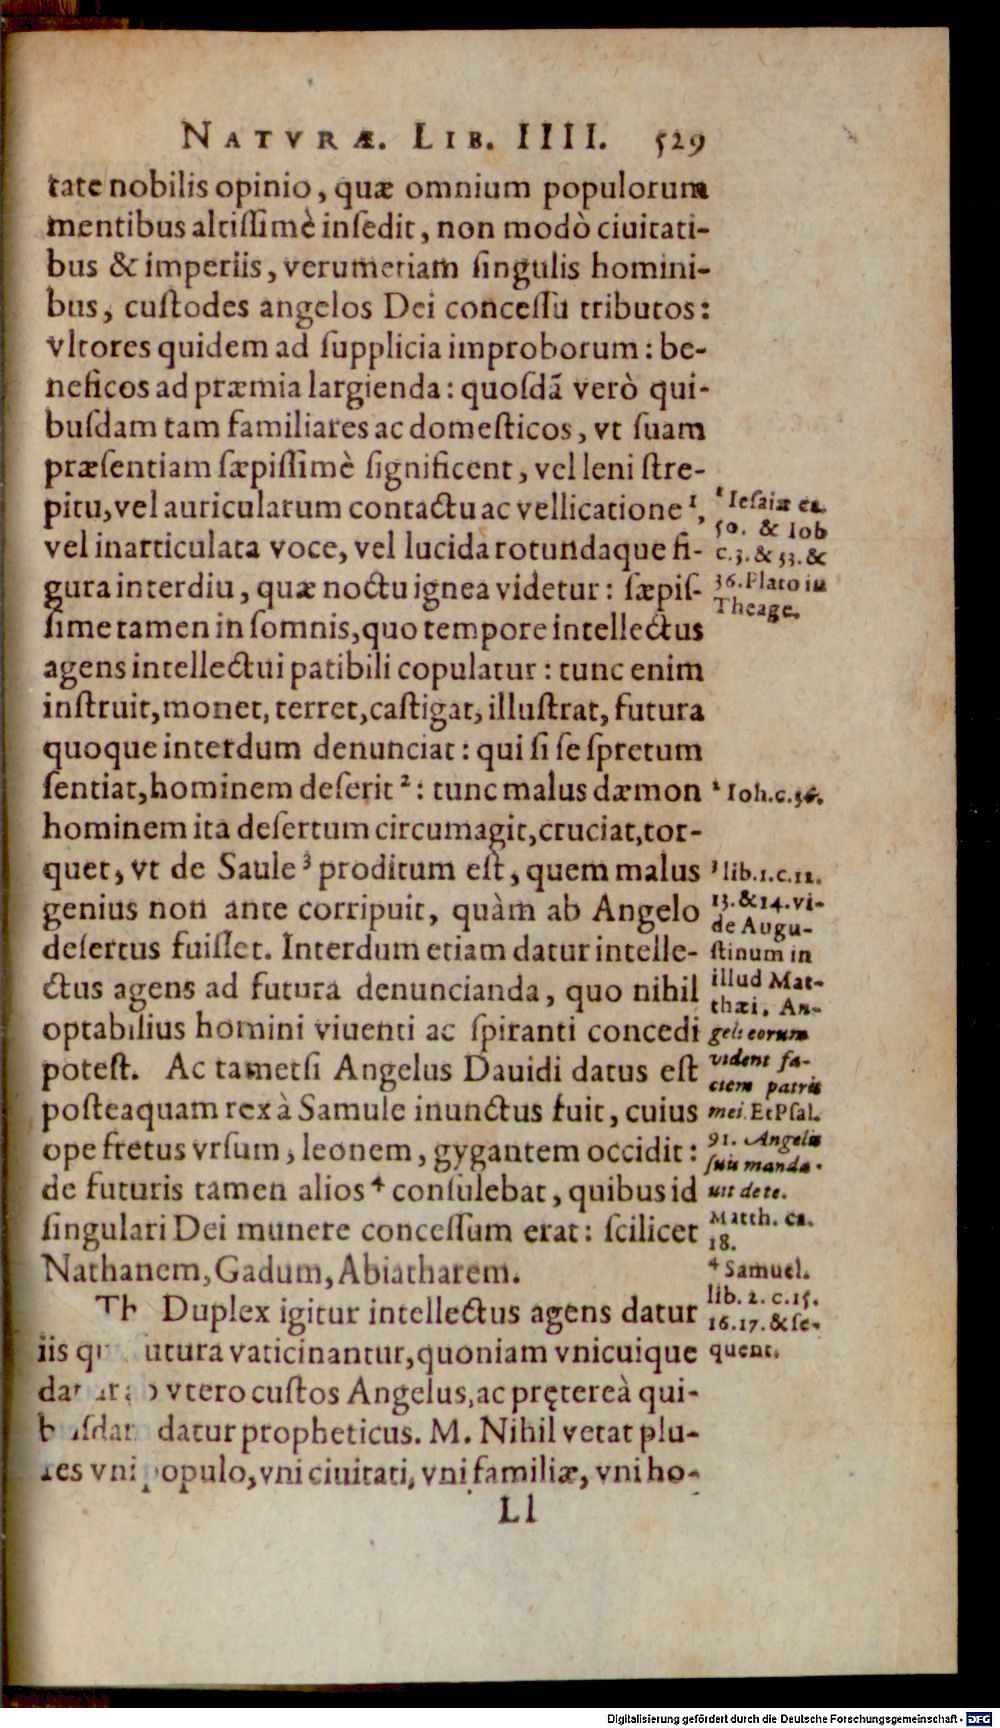 NATVRÆ. LIB. IIII. 529
tate nobilis opinio, quæ omnium populorum
mentibus altissimè insedit, non modò ciuitati-
bus & imperiis, verumetiam singulis homini-
bus, custodes angelos Dei concessu tributos:
vltores quidem ad supplicia improborum: be-
neficos ad præmia largienda: quosdã verò qui-
busdam tam familiares ac domesticos, vt suam
præsentiam sæpissimè significent, vel leni stre-
pitu, vel auricularum contactu ac vellicatione ¹,
vel inarticulata voce, vel lucida rotundaque fi-
gura interdiu, quæ noctu ignea videtur: sæpis-
sime tamen in somnis, quo tempore intellectus
agens intellectui patibili copulatur: tunc enim
instruit, monet, terret, castigat, illustrat, futura
quoque interdum denunciat: qui si se spretum
sentiat, hominem deserit ²: tunc malus dæmon
hominem ita desertum circumagit, cruciat, tor-
quet, vt de Saule ³ proditum est, quem malus
genius non ante corripuit, quàm ab Angelo
desertus fuisset. Interdum etiam datur intelle-
ctus agens ad futura denuncianda, quo nihil
optabilius homini viuenti ac spiranti concedi
potest. Ac tametsi Angelus Dauidi datus est
posteaquam rex à Samule inunctus fuit, cuius
ope fretus vrsum, leonem, gygantem occidit:
de futuris tamen alios ⁴ consulebat, quibus id
singulari Dei munere concessum erat: scilicet
Nathanem, Gadum, Abiatharem.
Th Duplex igitur intellectus agens datur
iis utura vaticinantur, quoniam vnicuique
vtero custos Angelus, ac prętereà qui-
datur propheticus. M. Nihil vetat plu-
res vni populo, vni ciuitati, vni familiæ, vni ho-
Ll
¹ Iesaiæ ca.
50. & Iob
c.3. & 33. &
36. Plato in
Theage.
² Ioh.c.36.
³ lib.1.c.12.
13.&14. vi-
de Augu-
stinum in
illud Mat-
thæi, An-
geli eorum
vident fa-
ciem patris
mei. Et Psal.
91. Angelis
suis manda-
uit de te.
Matth. ca.
18.
⁴ Samuel.
lib. 2. c.15.
16.17. & se-
quent.
Digitalisierung gefördert durch die Deutsche Forschungsgemeinschaft - DFG